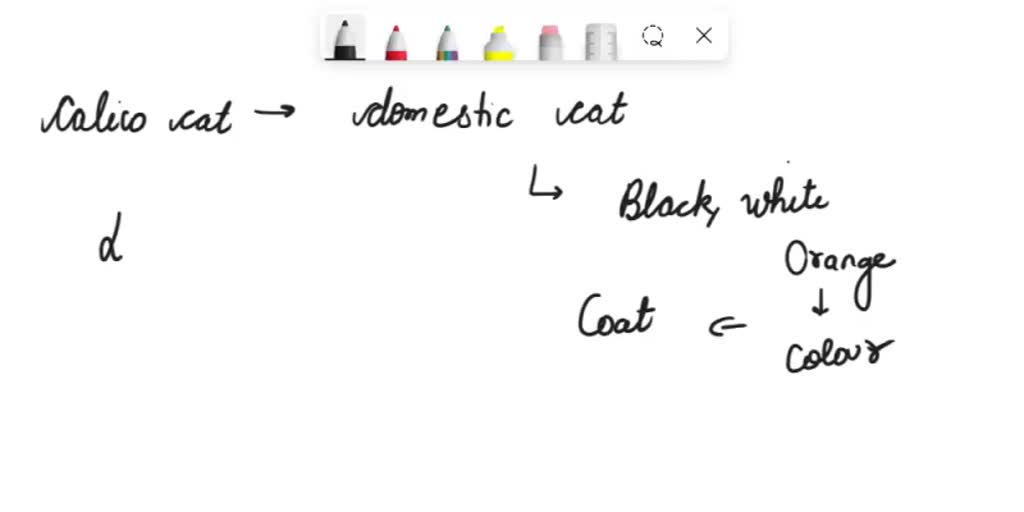 Calico cat → domestic cat
↳ Black, white
Orange
↓
Coat ← colour
d